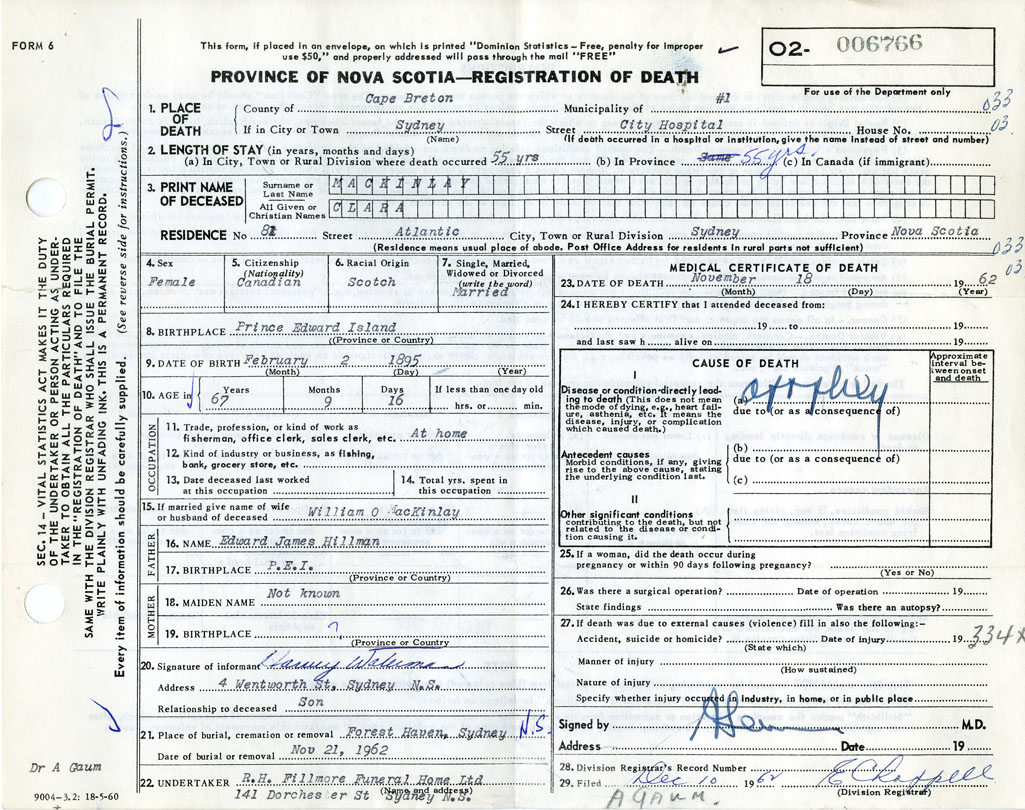 FORM 6
This form, if placed in an envelope, on which is printed "Dominion Statistics – Free, penalty for improper
use $50," and properly addressed will pass through the mail "FREE"
O2- 006766
For use of the Department only
PROVINCE OF NOVA SCOTIA—REGISTRATION OF DEATH
SEC. 14 – VITAL STATISTICS ACT MAKES IT THE DUTY
OF THE UNDERTAKER OR PERSON ACTING AS UNDER-
TAKER TO OBTAIN ALL THE PARTICULARS REQUIRED
IN THE "REGISTRATION OF DEATH" AND TO FILE THE
SAME WITH THE DIVISION REGISTRAR WHO SHALL ISSUE THE BURIAL PERMIT.
WRITE PLAINLY WITH UNFADING INK. THIS IS A PERMANENT RECORD.
Every item of information should be carefully supplied. (See reverse side for instructions.)
1. PLACE OF DEATH
County of Cape Breton Municipality of #1
033
If in City or Town Sydney Street City Hospital House No.
03.
(Name) (If death occurred in a hospital or institution, give the name instead of street and number)
2. LENGTH OF STAY (in years, months and days)
(a) In City, Town or Rural Division where death occurred 55 yrs (b) In Province Same 55 yrs (c) In Canada (if immigrant)
3. PRINT NAME OF DECEASED
Surname or Last Name MACKINLAY
All Given or Christian Names CLARA
RESIDENCE No 81 Street Atlantic City, Town or Rural Division Sydney Province Nova Scotia
(Residence means usual place of abode. Post Office Address for residents in rural parts not sufficient)
033
03
4. Sex
Female
5. Citizenship
(Nationality)
Canadian
6. Racial Origin
Scotch
7. Single, Married,
Widowed or Divorced
(write the word)
Married
8. BIRTHPLACE Prince Edward Island
(Province or Country)
9. DATE OF BIRTH February 2 1895
(Month) (Day) (Year)
10. AGE in
Years Months Days If less than one day old
67 9 16 hrs. or min.
OCCUPATION
11. Trade, profession, or kind of work as
fisherman, office clerk, sales clerk, etc. At home
12. Kind of industry or business, as fishing,
bank, grocery store, etc.
13. Date deceased last worked
at this occupation
14. Total yrs. spent in
this occupation
15. If married give name of wife
or husband of deceased William O MacKinlay
FATHER
16. NAME Edward James Hillman
17. BIRTHPLACE P.E.I.
(Province or Country)
MOTHER
18. MAIDEN NAME Not known
19. BIRTHPLACE ?
(Province or Country
20. Signature of informant Harvey Waterman
Address 4 Wentworth St, Sydney N.S.
Relationship to deceased Son
21. Place of burial, cremation or removal Forest Haven, Sydney N.S.
Date of burial or removal Nov 21, 1962
22. UNDERTAKER R.H. Fillmore Funeral Home Ltd
(Name and address)
141 Dorchester St Sydney N.S.
Dr A Gaum
9004-3.2: 18-5-60
MEDICAL CERTIFICATE OF DEATH
23. DATE OF DEATH November 18 1962
(Month) (Day) (Year)
24. I HEREBY CERTIFY that I attended deceased from:
19 to 19
and last saw h alive on 19
CAUSE OF DEATH
Approximate
interval be-
tween onset
and death
I
Disease or condition directly lead-
ing to death (This does not mean
the mode of dying, e.g., heart fail-
ure, asthenia, etc. It means the
disease, injury, or complication
which caused death.)
(a)
due to (or as a consequence of)
Antecedent causes
Morbid conditions, if any, giving
rise to the above cause, stating
the underlying condition last.
(b)
due to (or as a consequence of)
(c)
II
Other significant conditions
contributing to the death, but not
related to the disease or condi-
tion causing it.
25. If a woman, did the death occur during
pregnancy or within 90 days following pregnancy?
(Yes or No)
26. Was there a surgical operation? Date of operation 19
State findings Was there an autopsy?
27. If death was due to external causes (violence) fill in also the following:–
Accident, suicide or homicide? Date of injury 19
334x
(State which)
Manner of injury
(How sustained)
Nature of injury
Specify whether injury occurred in industry, in home, or in public place
Signed by M.D.
Address Date 19
28. Division Registrar's Record Number
29. Filed Dec 10 1962 E Chappell
(Division Registrar)
A GAUM.